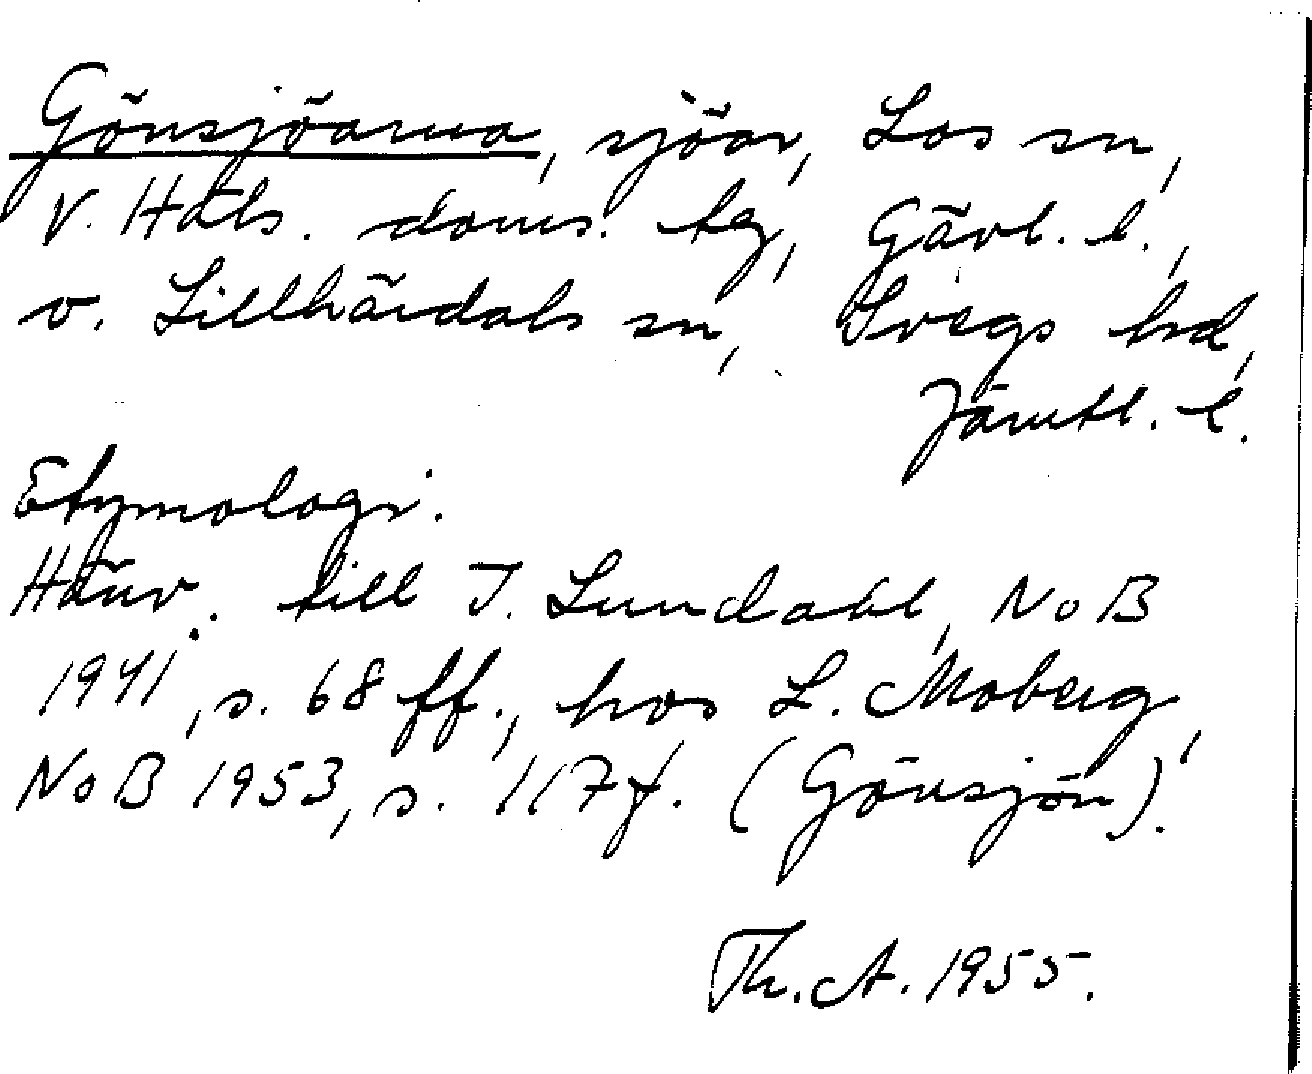 Gönsjöarna, sjöar, Los sn,
V. Häls. doms. tg, Gävl. l.,
o. Lillhärdals sn, Svegs hd,
Jämtl. l.
Etymologi.
Hänv. till I. Lundahl, NoB
1941, s. 68 ff., hos L. Moberg,
NoB 1953, s. 117 f. (Gönsjön).
Th. A. 1955.